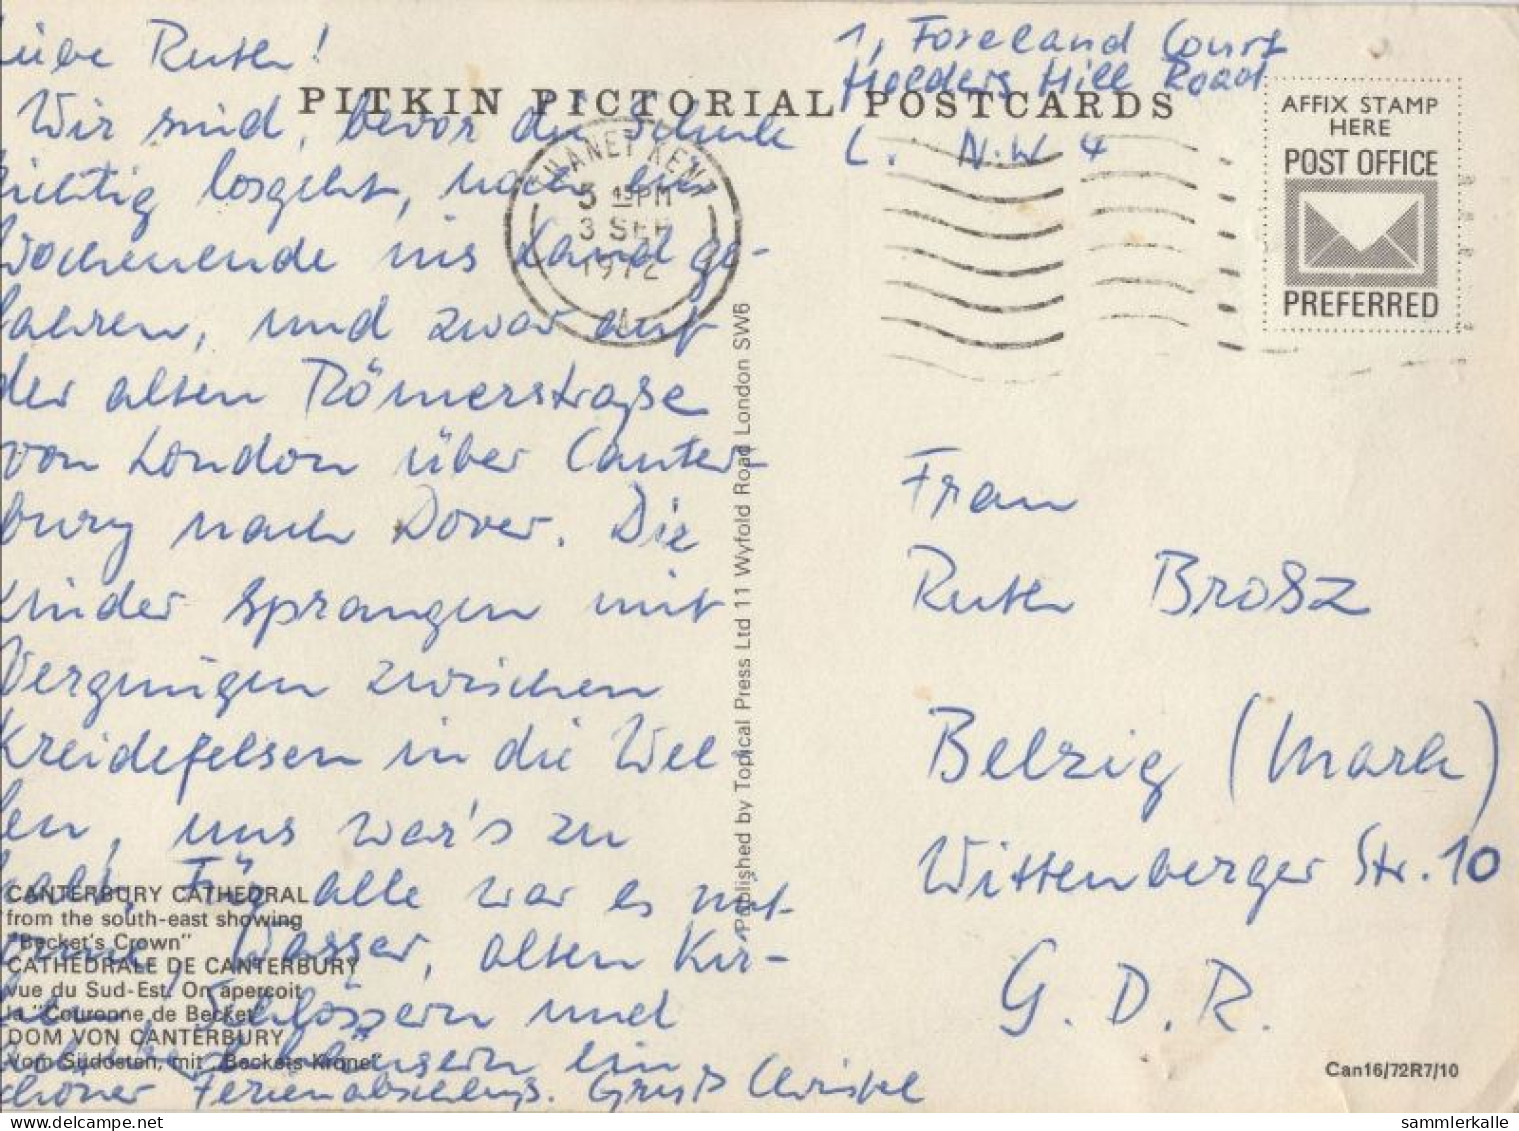 Liebe Ruth!
Wir sind, bevor die Schule
richtig losgeht, noch ein
Wochenende ins Land ge-
fahren, und zwar auf
der alten Römerstraße
von London über Canter-
bury nach Dover. Die
Kinder sprangen mit
Vergnügen zwischen
Kreidefelsen in die Wel
len, uns war's zu
kalt. Für alle war es mit
Wasser, alten Kir-
chen, Schlössern und
ein
schöner Ferienabschluß. Gruß Christel
PITKIN PICTORIAL POSTCARDS
1, Foreland Court
Holders Hill Road
L. N.W 4
THANET KENT
5 15 PM
3 SEP
1972
A
AFFIX STAMP
HERE
POST OFFICE
PREFERRED
Published by Topical Press Ltd 11 Wyfold Road London SW6
Frau
Ruth Brosz
Belzig (Mark)
Wittenberger Str. 10
G.D.R.
CANTERBURY CATHEDRAL
from the south-east showing
"Becket's Crown"
CATHEDRALE DE CANTERBURY
vue du Sud-Est. On aperçoit
la "Couronne de Becket"
DOM VON CANTERBURY
Vom Südosten, mit „Beckets Krone"
Can16/72R7/10
sammlerkalle